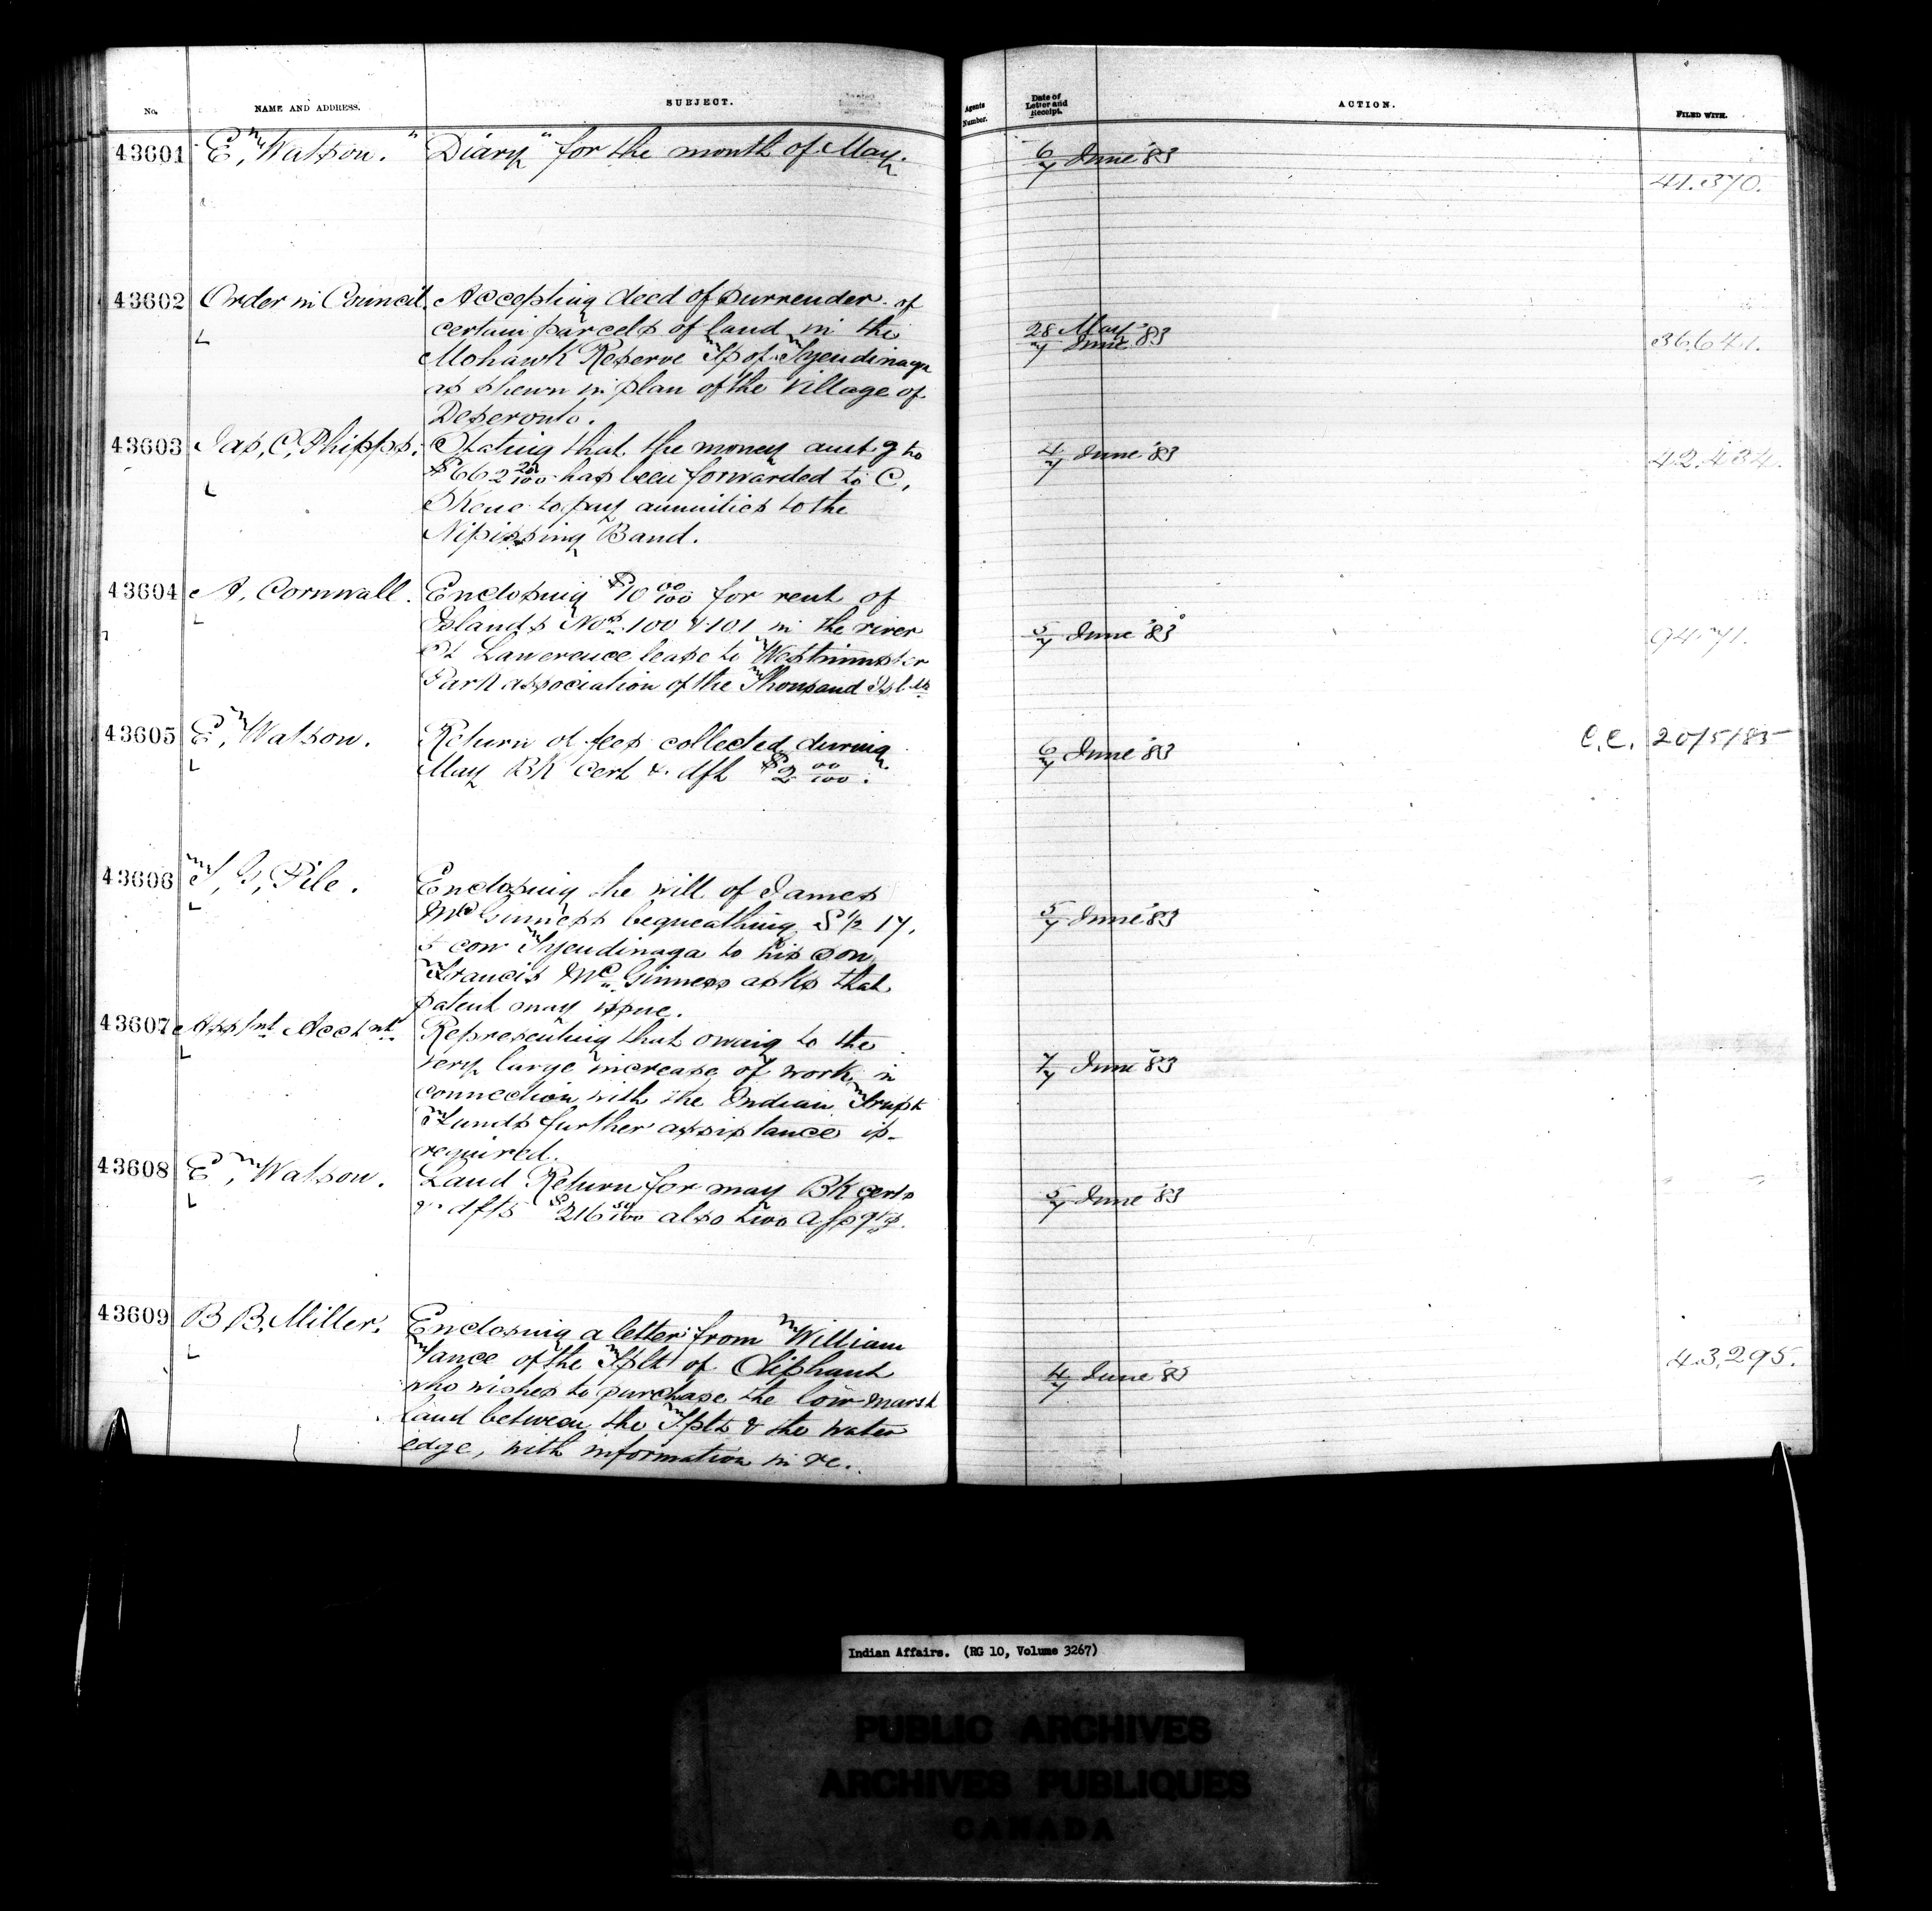 No. NAME AND ADDRESS. SUBJECT. Agents Number. Date of Letter and Receipt. ACTION. FILED WITH.
43601 E, Watson. "Diary" for the month of May. 6/7 June '83
41.370.
43602 Order in Council. Accepting deed of surrender of
certain parcels of land in the 28 May/7 June '83 36.641.
Mohawk Reserve Tp of Tyendinaga
as shewn in plan of the Village of
Deseronto.
43603 Jas, C, Phipps. Stating that the money amtg to 4/7 June '83 42.434.
$662 20/100 has been forwarded to C,
Skene to pay annuities to the
Nipissing Band.
43604 A, Cornwall. Enclosing $10 00/100 for rent of
Islands Nos. 100 & 101 in the river 5/7 June '83 9471.
St Lawerence lease to Westminster
Park association of the Thousand Islds
43605 E, Watson. Return of fees collected during 6/7 June '83 C.C. 20/5/85
May BK Cert & dft $2 00/100.
43606 T, G, Pile. Enclosing the will of James
McGinness bequeathing S 1/2 17, 5/7 June '83
con Tyendinaga to his son
Francis Mc Ginness asks that
patent may issue.
43607 Asstnt Acctnt. Representing that owing to the
very large increase of work in 7/7 June '83
connection with the Indian Trust
Funds further assistance is
required.
43608 E, Watson. Land Return for may BK certs 5/7 June '83
& dfts $216 50/100 also two Assgts.
43609 B B. Miller. Enclosing a letter from William
Vance of the Tplt of Oliphant 4/7 June '83 43,295.
who wishes to purchase the low marsh
land between the Tplt & the water
edge, with information in re.
Indian Affairs. (RG 10, Volume 3267)
PUBLIC ARCHIVES
ARCHIVES PUBLIQUES
CANADA